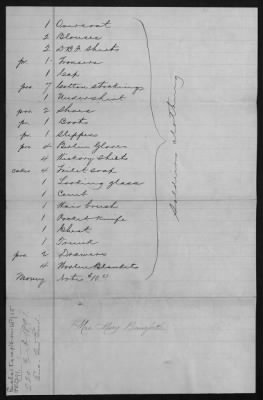 1 Overcoat
2 Blouses
2 D.B.F. Shirts
pr. 1 Trousers
1 Cap
prs 7 Cotton Stockings
1 Undershirt
prs 2 Shoes
pr. 1 Boots
pr. 1 Slippers
prs 4 Berlin Gloves
4 Hickory Shirts
cakes 4 Toilet Soap
1 Looking glass
1 Comb
1 Hair brush
1 Pocket Knife
1 Chest
1 Trunk
prs 2 Drawers
4 Woolen Blankets
Money Note $10.0
Soldiers clothing
Mrs Mary